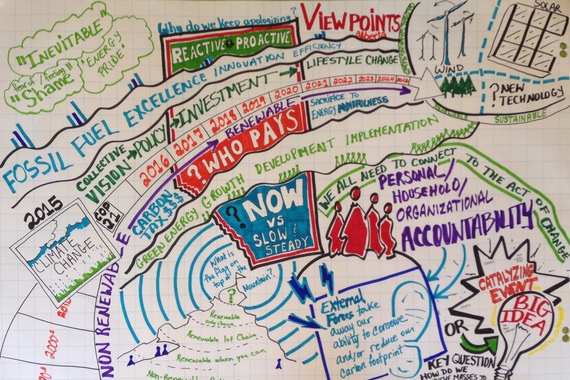 Why do we keep apologizing?
VIEWPOINTS
Alberta
SOLAR
"INEVITABLE"
"Share"
ENERGY
PRIDE
REACTIVE PROACTIVE
FOSSIL FUEL EXCELLENCE INNOVATION EFFICIENCY
LIFESTYLE CHANGE
WIND
? NEW
TECHNOLOGY
SUSTAINABLE
COLLECTIVE
VISION POLICY INVESTMENT
2016 2017 2018 2019 2020 2021 2022 2023 2024
RENEWABLE
SACRIFICE TO
ENERGY MINDFULNESS
? WHO PAYS
CARBON
TAX $$$
COP
21
GREEN ENERGY GROWTH DEVELOPMENT IMPLEMENTATION
2015
CLIMATE
CHANGE
NON RENEWABLE
2000's
? NOW
VS
SLOW &
STEADY
WE ALL NEED TO CONNECT TO THE ACT OF CHANGE
PERSONAL/
HOUSEHOLD/
ORGANIZATIONAL
ACCOUNTABILITY
What is
the flag on
top of the
Mountain?
?
Renewable
Renewable 1st Choice
Renewable when you can
External
Forces take
away our
ability to conserve
and/or reduce our
carbon footprint
CATALYZING
EVENT
OR
BIG
IDEA
KEY QUESTION
HOW DO WE